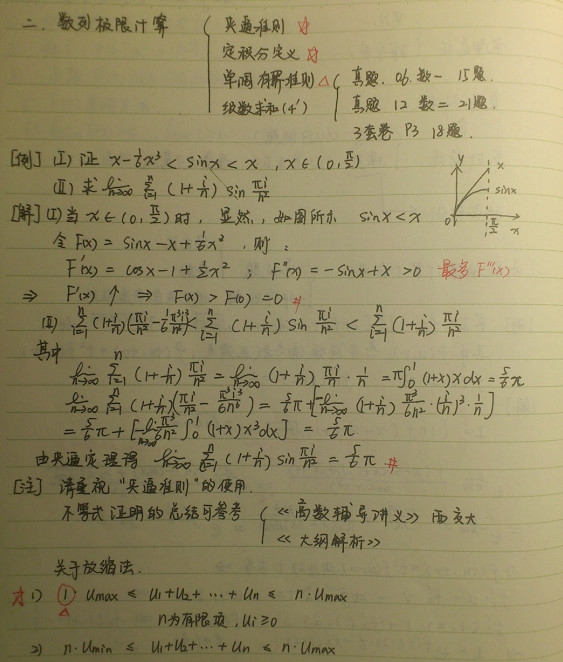 二、数列极限计算 { 夹逼准则 ☆
定积分定义 ☆
单调有界准则 △ { 真题 06 数一 15题.
级数求和(4') 真题 12 数二 21题.
3套卷 P3 18题.
[例] (I) 证 x-1/6x³ < sinx < x , x∈(0, π/2)
(II) 求 lim n→∞ ∑ i=1 n (1+i/n) sin πi/n²
y x sinx 0 π/2 x
[解] (I) 当 x∈(0, π/2) 时, 显然, 如图所示 sinx<x
令 F(x) = sinx-x+1/6x³ , 则:
F'(x) = cosx-1+1/2x² ; F''(x) = -sinx+x >0 最多 F''(x)
⇒ F'(x) ↑ ⇒ F(x) > F(0) =0 #
(II) ∑ i=1 n (1+i/n)(πi/n² - 1/6 π³i³/n⁶) < ∑ i=1 n (1+i/n) sin πi/n² < ∑ i=1 n (1+i/n) πi/n²
其中
lim n→∞ ∑ i=1 n (1+i/n) πi/n² = lim n→∞ (1+i/n) πi/n · 1/n = π∫₀¹ (1+x)x dx = 5/6π
lim n→∞ ∑ i=1 n (1+i/n)(πi/n² - π³i³/6n⁶) = 5/6π + [-lim n→∞ (1+i/n) π³/6n² · (i/n)³ · 1/n]
= 5/6π + [-lim n→∞ π³/6n² ∫₀¹ (1+x) x³dx] = 5/6π.
由夹逼定理得 lim n→∞ ∑ i=1 n (1+i/n) sin πi/n² = 5/6π #
[注] 请重视“夹逼准则”的使用.
不等式证明的总结可参考 { 《高数辅导讲义》 西交大
《大纲解析》
关于放缩法.
☆ 1) ① · Umax ≤ U₁+U₂+…+Un ≤ n·Umax
△ n为有限项, Ui≥0
2) n·Umin ≤ U₁+U₂+…+Un ≤ n·Umax